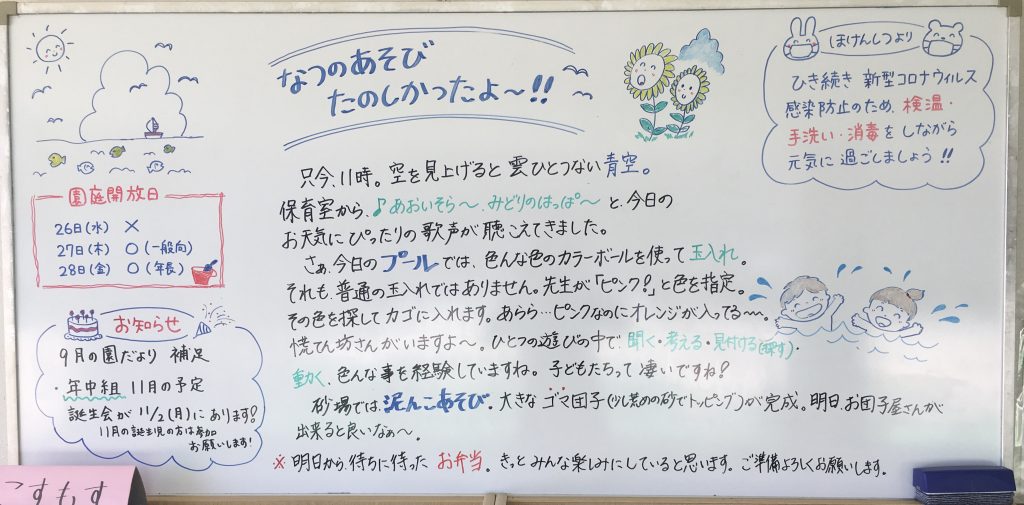 なつのあそび
たのしかったよ～!!
ほけんしつより
ひき続き 新型コロナウィルス
感染防止のため、検温・
手洗い・消毒を しながら
元気に 過ごしましょう!!
園庭開放日
26日(水) ×
27日(木) ○(一般向)
28日(金) ○(年長)
お知らせ
9月の園だより 補足
・年中組 11月の予定
誕生会が 11/2(月)にあります!
11月の誕生児の方は参加
お願いします!
只今、11時。空を見上げると 雲ひとつない 青空。
保育室から、♪あおいそら～、みどりのはっぱ～ と、今日の
お天気に ぴったりの歌声が 聴こえてきました。
さぁ、今日の プール では、色んな色のカラーボールを使って 玉入れ。
それも、普通の玉入れではありません。先生が「ピンク!」と色を指定。
その色を探して カゴに入れます。あらら…ピンクなのにオレンジが入ってる～～。
慌てん坊さんがいますよ～。ひとつの遊びの中で 聞く・考える・見付ける(探す)・
動く、色んな事を経験していますね。子どもたちって 凄いですね!
砂場では、泥んこあそび。大きな ゴマ団子(少し荒めの砂でトッピング)が完成。明日、お団子屋さんが
出来ると良いなぁ～。
※ 明日から、待ちに待った お弁当。きっと みんな楽しみにしていると思います。ご準備よろしくお願いします。
こすもす